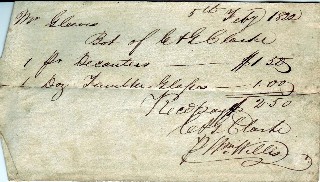 Mr Gleaves 5th Feby 1822
Bot of C & G Clarke
1 pr Decanters $1.50
1 Doz Tumbler Glasses 1.00
$2.50
Recd payt
C & G Clarke
Wm Willis